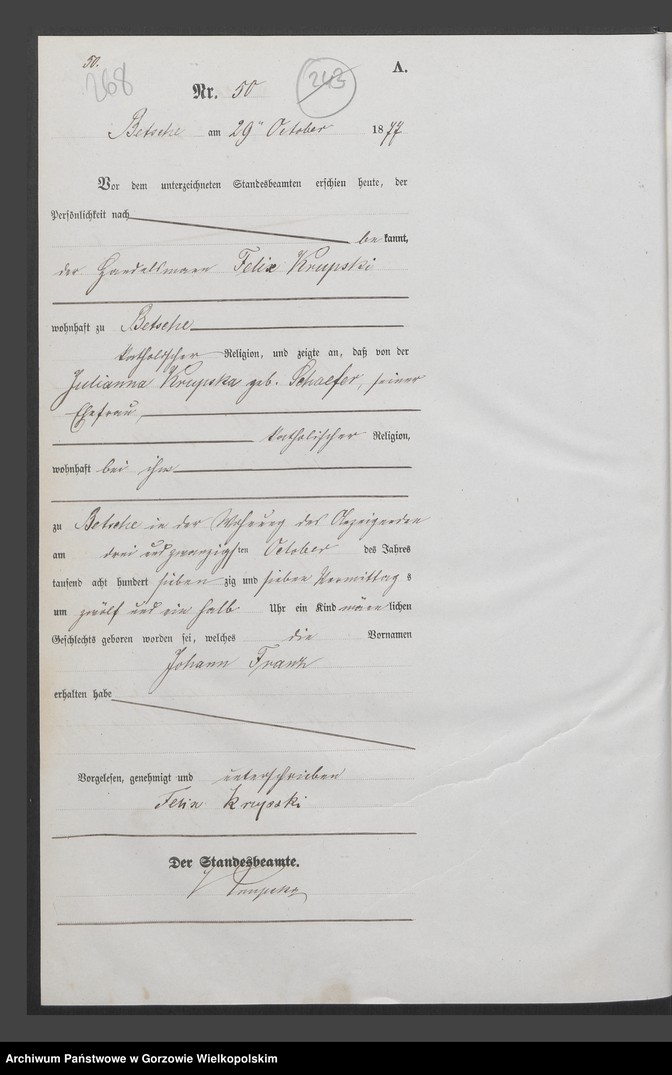 50.
268
A.
Nr. 50
243
Betsche am 29" October 1877
Vor dem unterzeichneten Standesbeamten erschien heute, der
Persönlichkeit nach
bekannt,
der Handelsmann Felix Krupski
wohnhaft zu Betsche
katholischer Religion, und zeigte an, daß von der
Julianna Krupska geb. Schaefer, seiner
Ehefrau,
katholischer Religion,
wohnhaft bei ihm
zu Betsche in der Wohnung des Anzeigenden
am drei und zwanzigsten October des Jahres
tausend acht hundert siebenzig und sieben Vormittags
um zwölf und ein halb Uhr ein Kind männlichen
Geschlechts geboren worden sei, welches die Vornamen
Johann Frank
erhalten habe
Vorgelesen, genehmigt und unterschrieben
Felix Krupski
Der Standesbeamte.
Archiwum Państwowe w Gorzowie Wielkopolskim